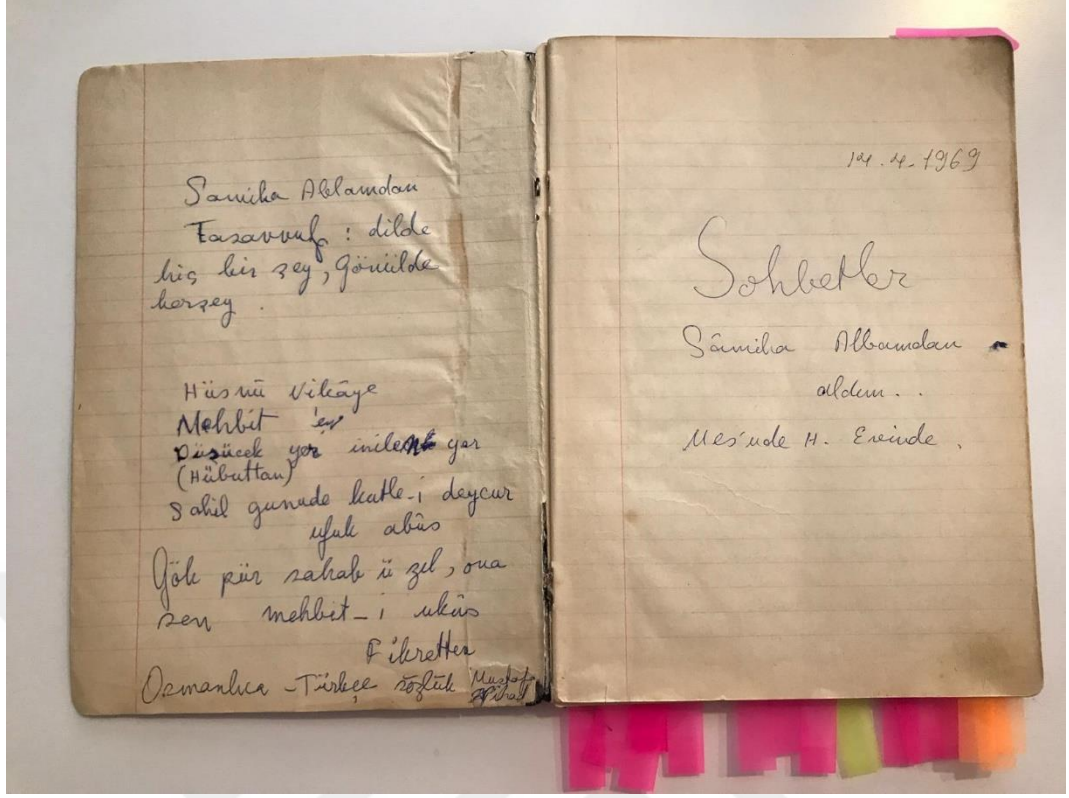 Samiha Ablamdan
Tasavvuf : dilde
hiç bir şey, gönülde
herşey .
Hüsnü vikâye
Mehbit
Düşücek yer inilen yer
(Hübuttan)
Sahil gunude katle-i deycur
ufuk abûs
Gök pür sahab ü zıl, ona
sen mehbit-i ukûs
Fikretten
Osmanlıca - Türkçe sözlük Mustafa
Nihat
14.4.1969
Sohbetler
Sâmiha Ablamdan
aldım . .
Mes'ude H. Evinde .